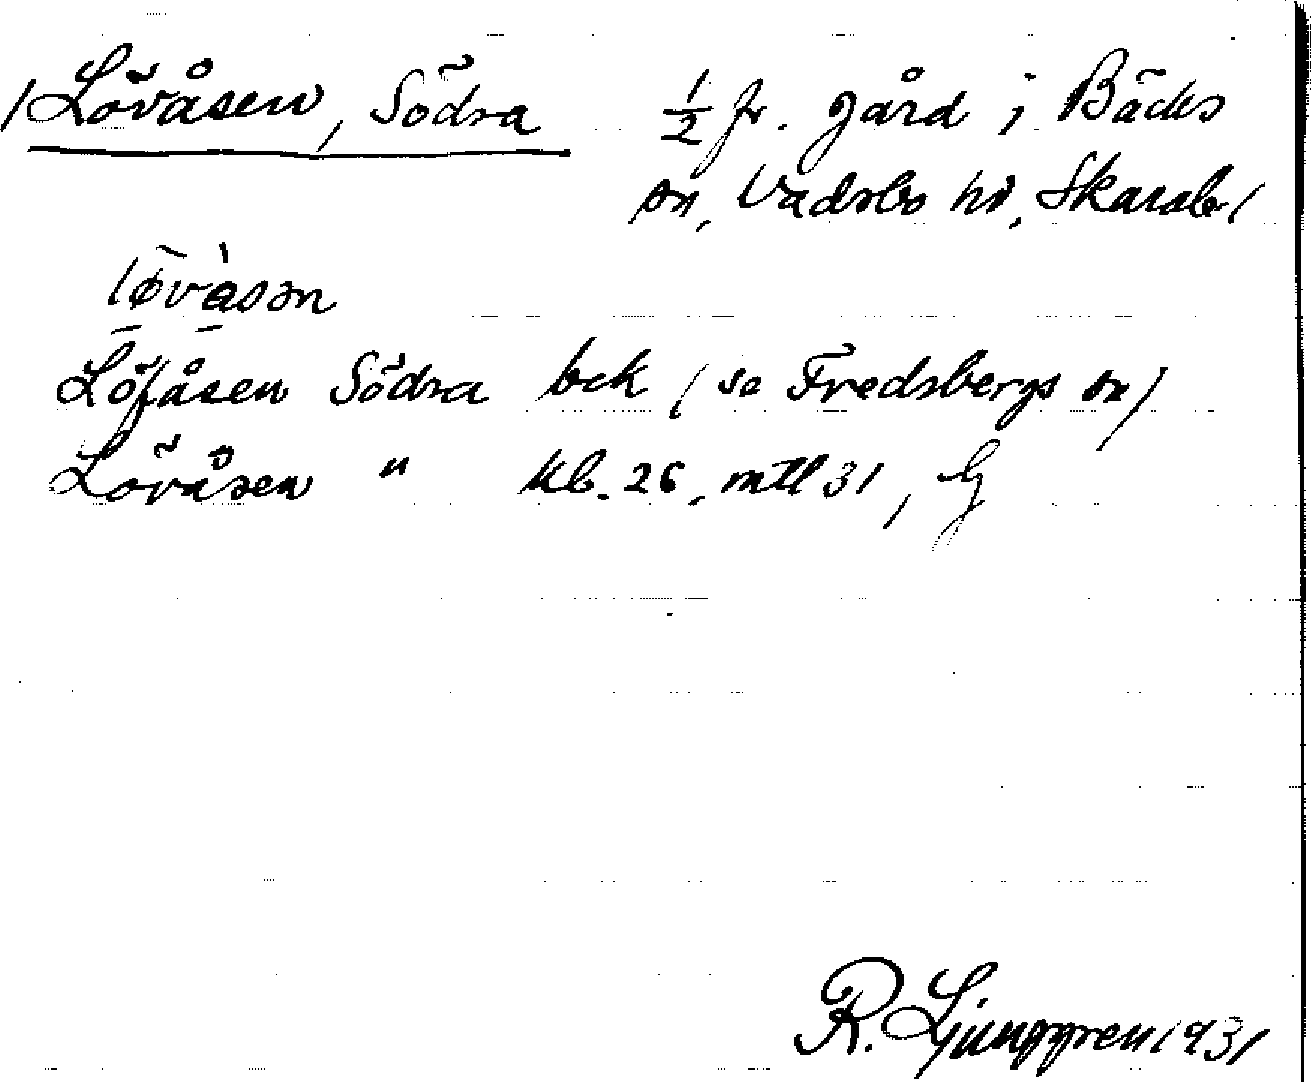 / Lövåsen, Södra ½ fr. gård i Bäcks
sn, Vadsbo hd, Skarab. l
løvåsən
Löfåsen Södra bek (se Fredsbergs sn)
Lövåsen " kb. 26, mtl 31, G
R. Ljunggren 1931